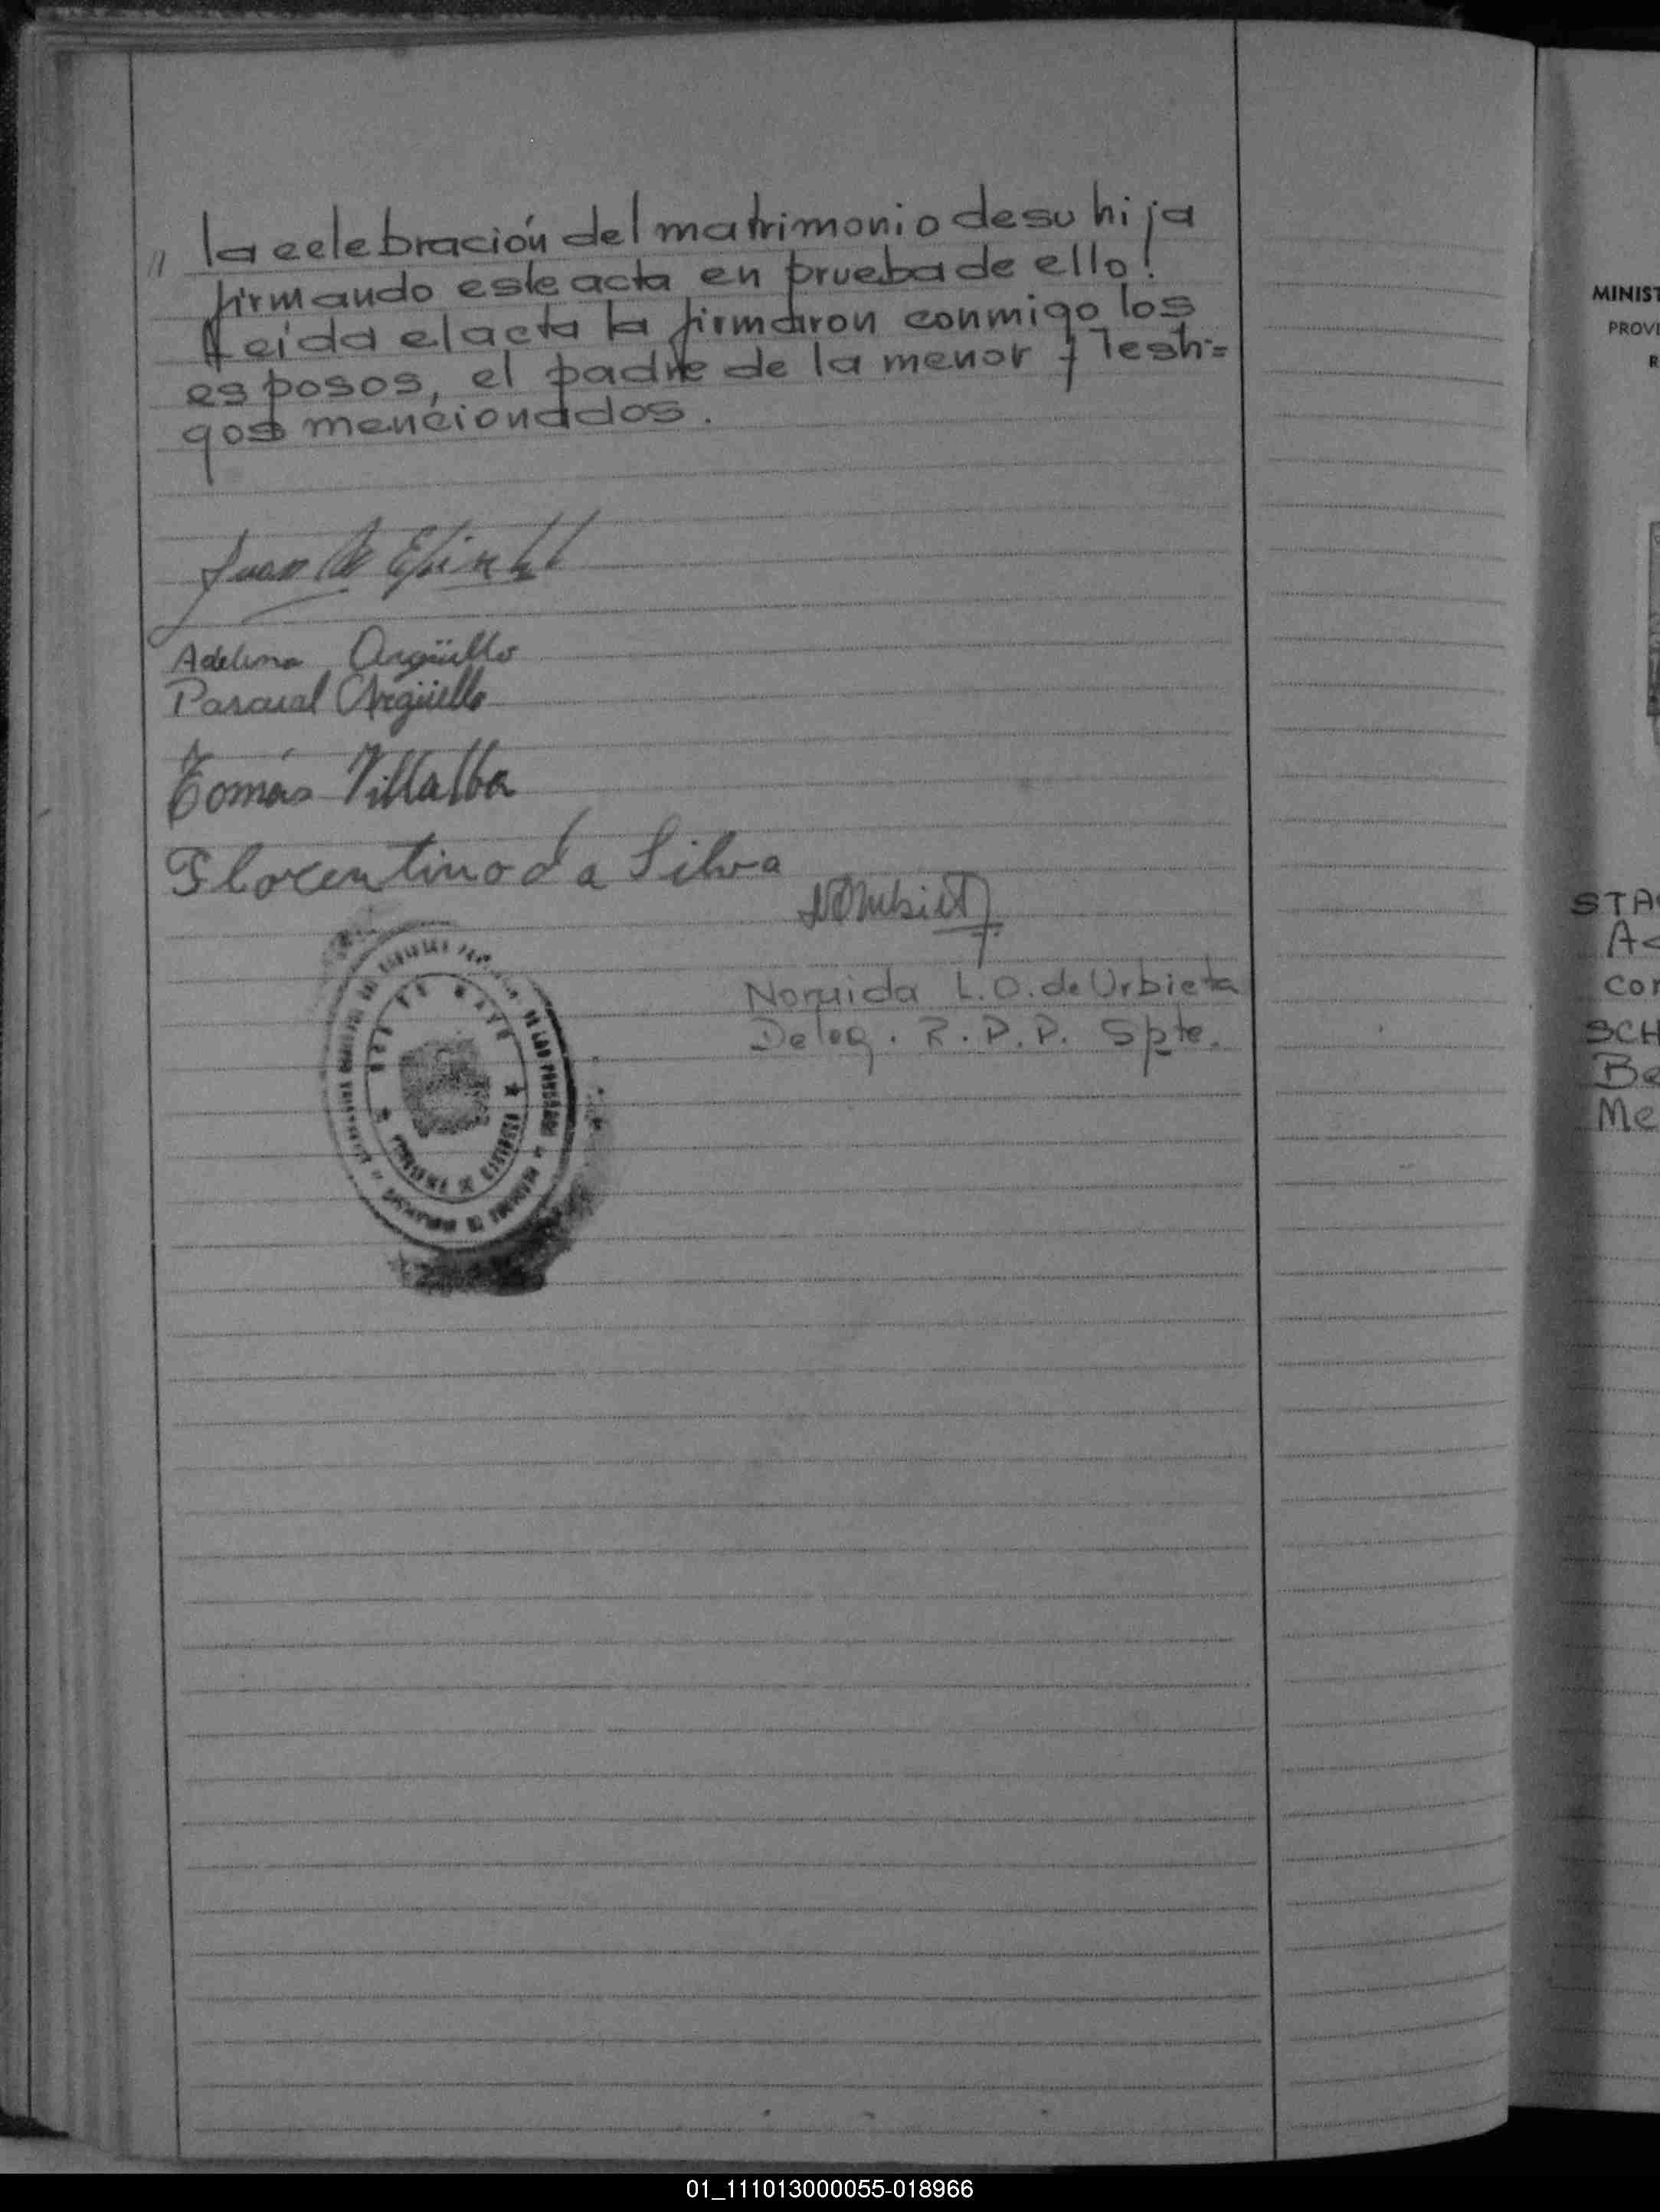 " la celebración del matrimonio de su hija
firmando este acta en prueba de ello!
Leída el acta la firmaron conmigo los
esposos, el padre de la menor y Testi=
gos mencionados.
Juan
Adelina Argüello
Pascual Argüello
Tomás Villalba
Florentino da Silva
Normida L.O. de Urbieta
Deleg. R.P.P. Spte.
DE LAS PERSONAS
MINIST
PROVI
R
STA
A
con
SCH
Be
Me
01_111013000055-018966